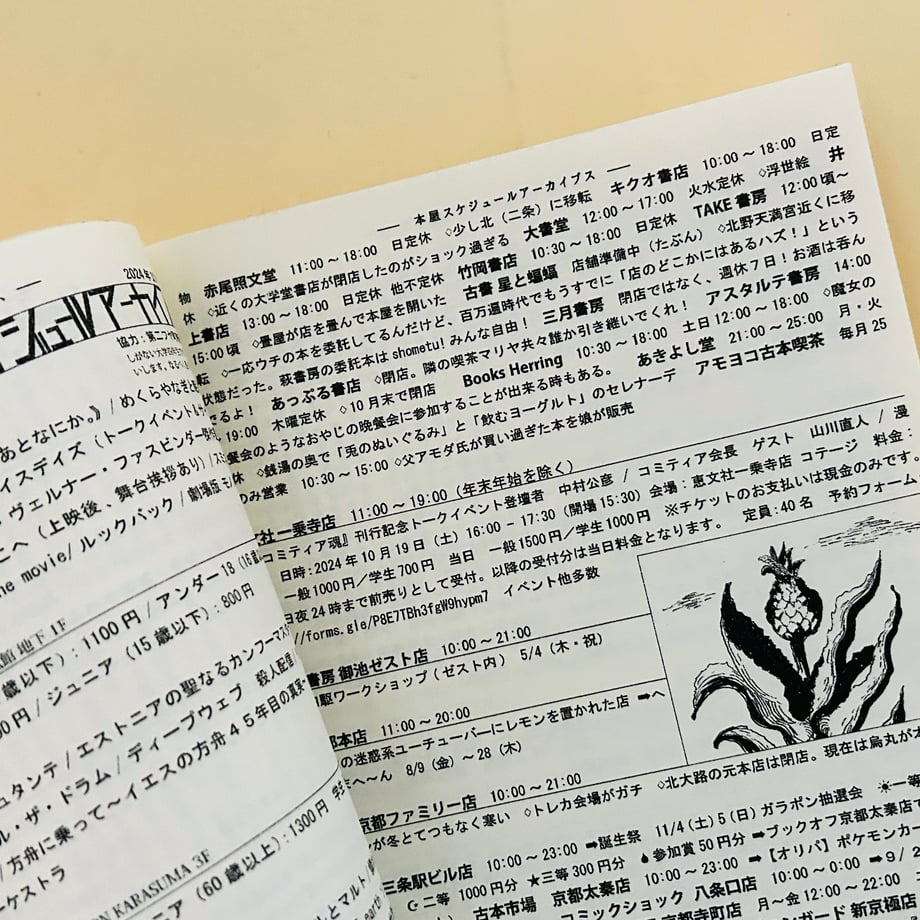 2024年
協力：第二
あとなにか。》/ めくらやなぎと
イスデイズ（トークイベント&サ
・ヴェルナー・ファスビンダー傑作
こへ（上映後、舞台挨拶あり）/ ス
he movie/ ルックバック / 劇場版モ
館 地下 1F
歳以下）: 1100円 / アンダー18（16歳
00円 / ジュニア（15歳以下）: 800円
ュタンテ / エストニアの聖なるカンフーマス
ル・ザ・ドラム / ディープウェブ 殺人配信
/ 方舟に乗って～イエスの方舟45年目の真実
ーケストラ
ON KARASUMA 3F
ニア（60歳以上）: 1300円 学生
― 本屋スケジュールアーカイブス ―
物 赤尾照文堂 11:00～18:00 日定休 ◇少し北（二条）に移転 キクオ書店 10:00～18:00 日定
休 ◇近くの大学堂書店が閉店したのがショック過ぎる 大書堂 12:00～17:00 火水定休 ◇浮世絵 井
上書店 13:00～18:00 日定休 他不定休 竹岡書店 10:30～18:00 日定休 TAKE書房 12:00頃～
15:00頃 ◇畳屋が店を畳んで本屋を開いた 古書 星と蝙蝠 店舗準備中（たぶん）◇北野天満宮近くに移
転 ◇一応ウチの本を委託してるんだけど、百万遍時代でもうすでに「店のどこかにはあるハズ！」という
状態だった。萩書房の委託本は shometu! みんな自由！ 三月書房 閉店ではなく、週休7日！お酒は呑ん
でるよ！ あっぷる書店 ◇閉店。隣の喫茶マリヤ共々誰か引き継いでくれ！ アスタルテ書房 14:00
19:00 木曜定休 ◇10月末で閉店 Books Herring 10:30～18:30 土日 12:00～18:00 ◇魔女の
餐会のようなおやじの晩餐会に参加することが出来る時もある。 あきよし堂 21:00～25:00 月・火
休 ◇銭湯の奥で「兎のぬいぐるみ」と「飲むヨーグルト」のセレナーデ アモヨコ古本喫茶 毎月25
のみ営業 10:30～15:00 ◇父アモダ氏が買い過ぎた本を娘が販売
文社 一乗寺店 11:00～19:00（年末年始を除く）
コミティア魂』刊行記念トークイベント登壇者 中村公彦 / コミティア会長 ゲスト 山川直人 / 漫
日時：2024年10月19日（土）16:00 - 17:30（開場15:30）会場：恵文社一乗寺店 コテージ 料金：
一般1000円/学生700円 当日 一般1500円/学生1000円 ※チケットのお支払いは現金のみです。
日夜24時まで前売りとして受付。以降の受付分は当日料金となります。 定員：40名 予約フォーム
//forms.gle/P8E7TBh3fgW9hypm7 イベント他多数
書房 御池ゼスト店 10:00～21:00
駆ワークショップ（ゼスト内） 5/4（木・祝）
都本店 11:00～20:00
の迷惑系ユーチューバーにレモンを置かれた店 ➡へ
へ～ん 8/9（金）～28（木）
京都ファミリー店 10:00～21:00
が冬とてつもなく寒い ◇トレカ会場がガチ ◇北大路の元本店は閉店。現在は烏丸が本
三条駅ビル店 10:00～23:00 ➡誕生祭 11/4（土）5（日）ガラポン抽選会 ☀一等
☪二等 1000円分 ★三等 300円分 参加賞 50円分 ➡ブックオフ京都太秦店で
古本市場 京都太秦店 10:00～23:00 ➡【オリパ】ポケモンカー
コミックショック 八条口店 10:00～0:00 ➡9/2
京都寺町店 月～金 12:00～22:00
新京極店